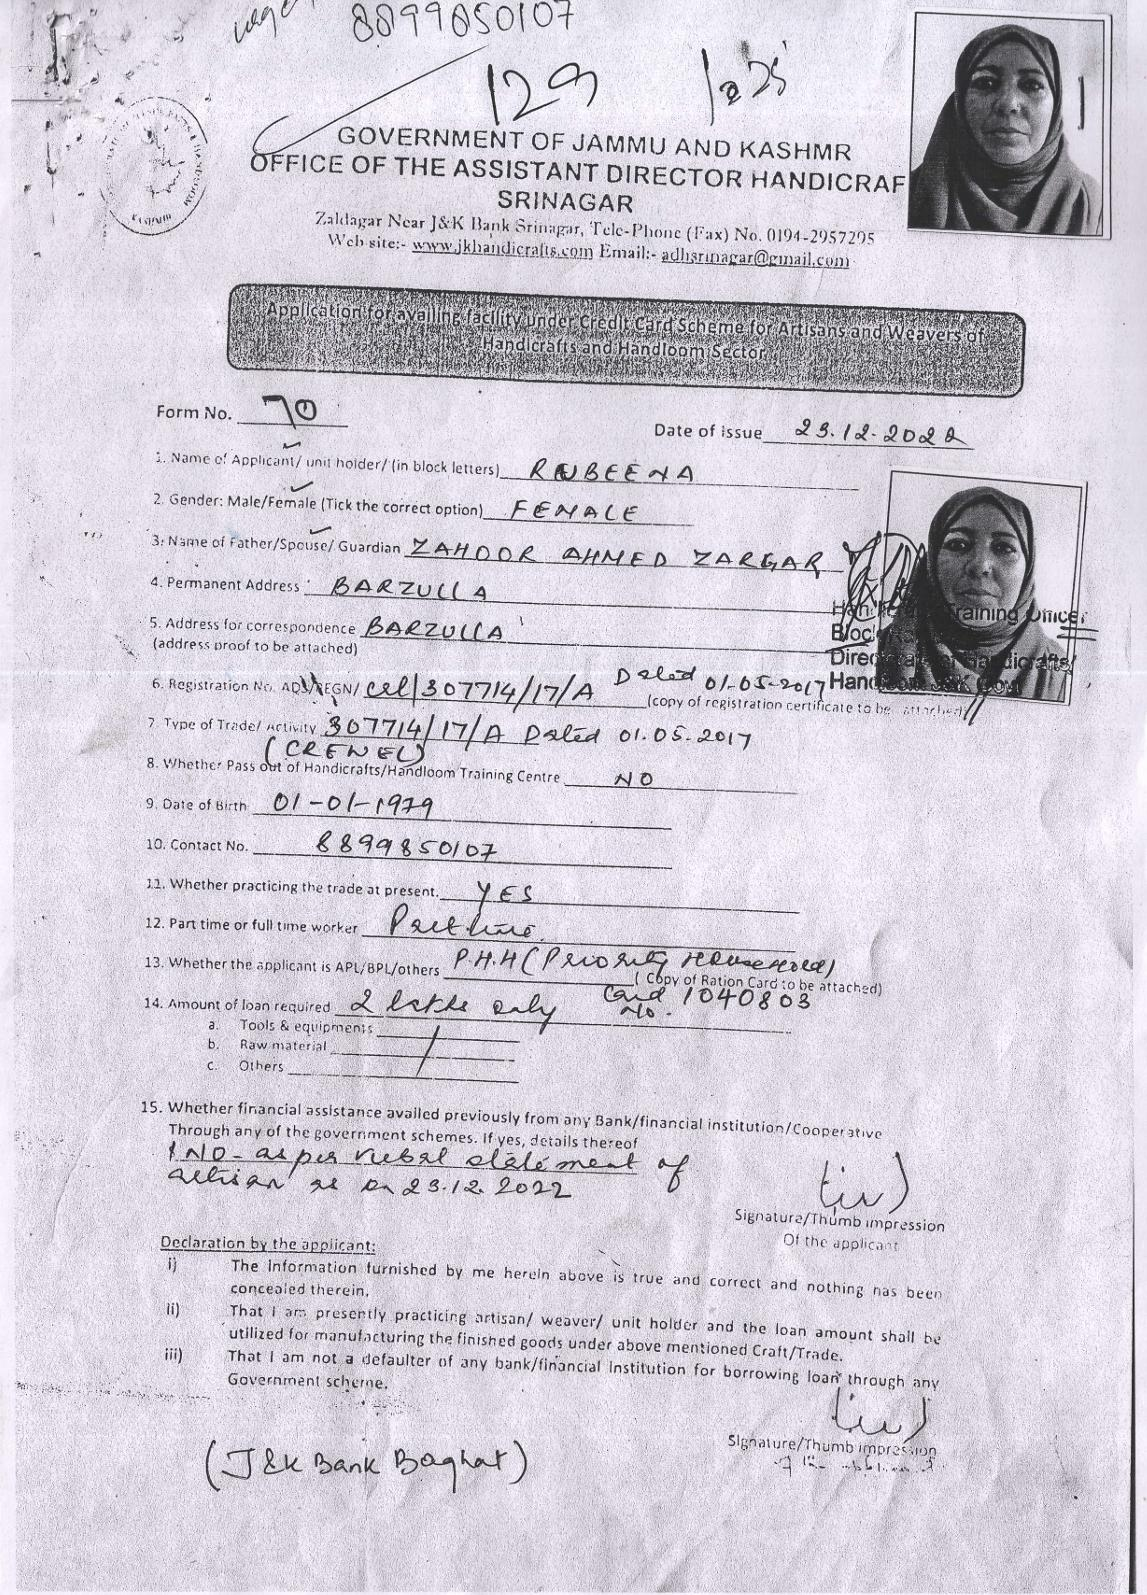 8899850107
129
GOVERNMENT OF JAMMU AND KASHMR
OFFICE OF THE ASSISTANT DIRECTOR HANDICRAF
SRINAGAR
Zaldagar Near J&K Bank Srinagar, Tele-Phone (Fax) No. 0194-2957295
Web site:- www.jkhandicrafts.com Email:- adhsrinagar@gmail.com
Application for availing facility under Credit Card Scheme for Artisans and Weavers of
Handicrafts and Handloom Sector
Form No. 70
Date of issue 23.12.2022
1. Name of Applicant/ unit holder/ (in block letters) RUBEENA
2. Gender: Male/Female (Tick the correct option) FEMALE
3. Name of Father/Spouse/ Guardian ZAHOOR AHMED ZARGAR
4. Permanent Address : BARZULLA
5. Address for correspondence BARZULLA
(address proof to be attached)
Handicrafts Training Officer
Block
Directorate of Handicrafts/
Handloom J&K Govt
6. Registration No. ADS/REGN/ cel/307714/17/A Dated 01-05-2017
(copy of registration certificate to be attached)
7. Type of Trade/ Activity 307714/17/A Dated 01.05.2017
(CREWEL)
8. Whether Pass out of Handicrafts/Handloom Training Centre NO
9. Date of Birth 01-01-1979
10. Contact No. 8899850107
11. Whether practicing the trade at present. YES
12. Part time or full time worker Part time.
13. Whether the applicant is APL/BPL/others P.H.H (Priority Household)
( Copy of Ration Card to be attached)
Card No. 1040803
14. Amount of loan required 2 lakhs only
a. Tools & equipments
b. Raw material
c. Others
15. Whether financial assistance availed previously from any Bank/financial institution/Cooperative
Through any of the government schemes. If yes, details thereof
NO- as per verbal statement of
artisan as on 23.12.2022
Signature/Thumb impression
Of the applicant
Declaration by the applicant:
i) The Information furnished by me herein above is true and correct and nothing has been
concealed therein.
ii) That I am presently practicing artisan/ weaver/ unit holder and the loan amount shall be
utilized for manufacturing the finished goods under above mentioned Craft/Trade.
iii) That I am not a defaulter of any bank/financial Institution for borrowing loan through any
Government scheme.
Signature/Thumb impression
(J&K Bank Baghat)